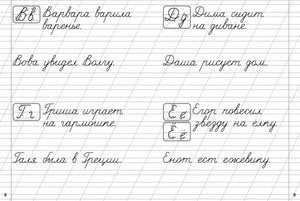 Вв
Варвара варила
варенье.
Вова увидел Волгу.
Гг
Гриша играет
на гармошке.
Галя была в Греции.
2
Дд
Дима сидит
на диване.
Даша рисует дом.
Ее
Ёё
Егор повесил
звезду на ёлку.
Енот ест ежевику.
3